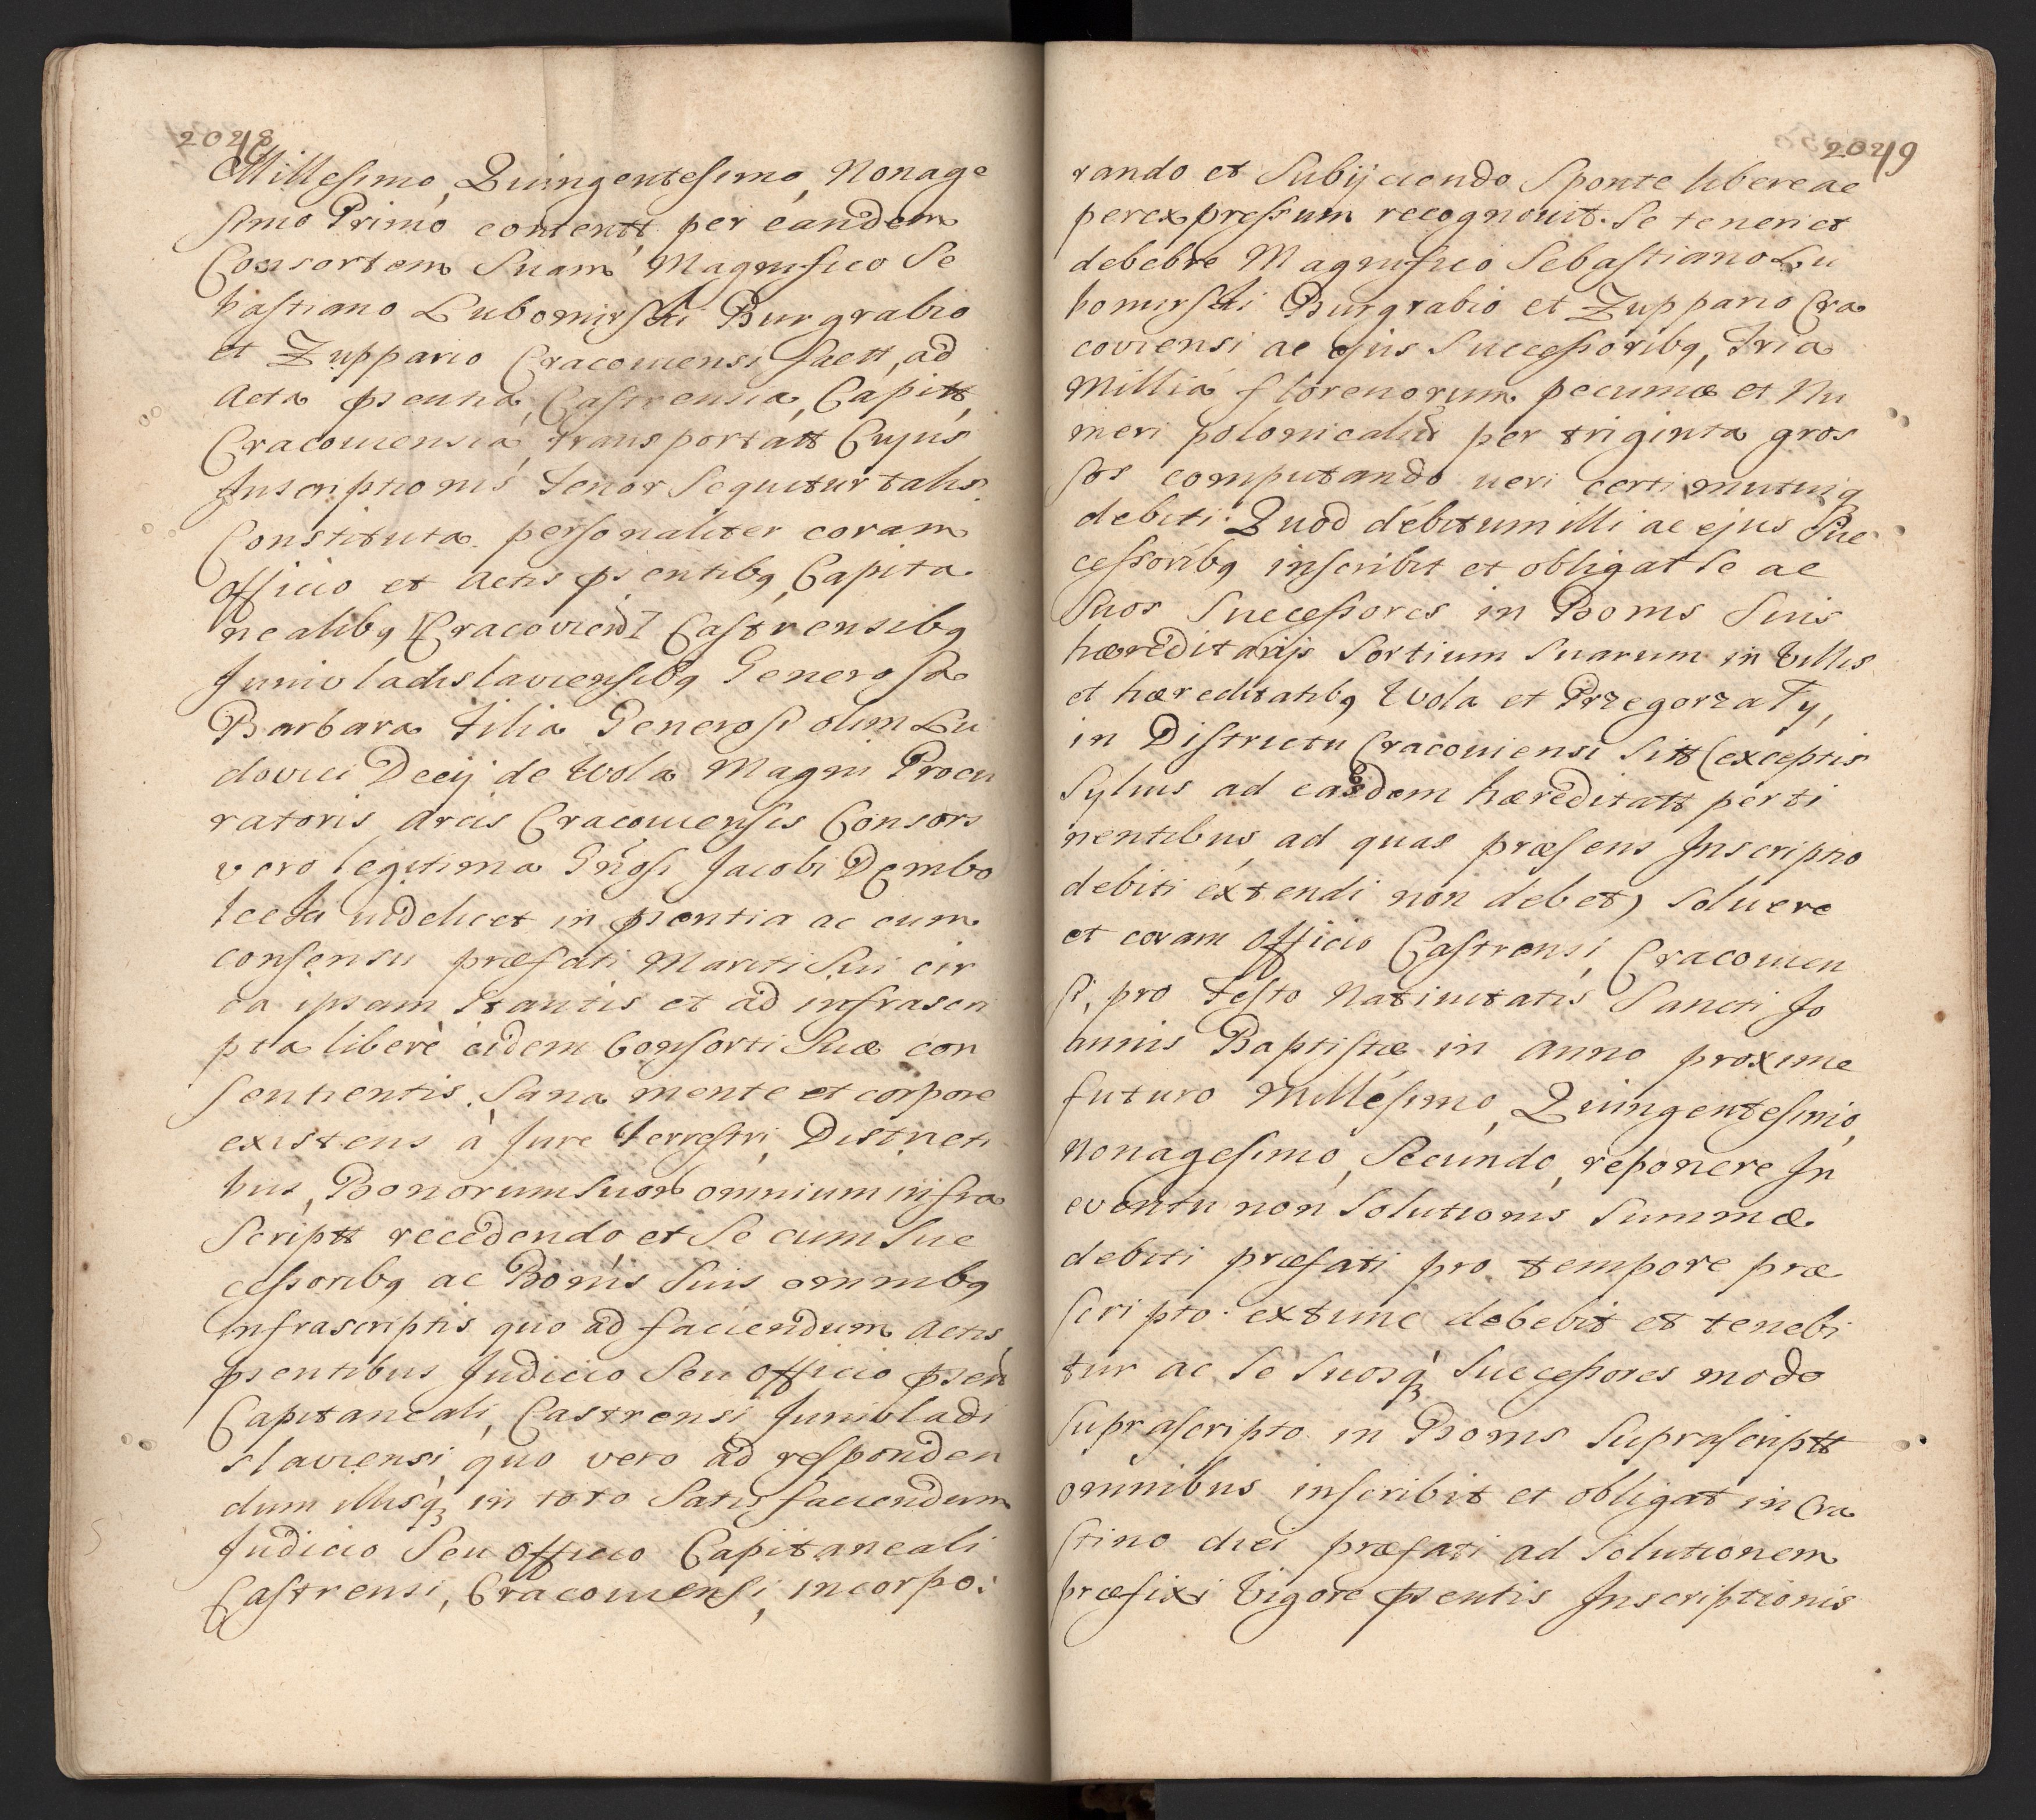 2048
Millesimo, Quingentesimo, Nonage
simo Primo contentt per eandem
Consortem Suam Magnifico Se
bastiano Lubomirski Burgrabio
et Zuppario Cracoviensi factt, ad
Acta pñentia, Castrensia, Capitt,
Cracoviensia, transportatt Cujus
Inscriptionis tenor Sequitur talis.
Constituta personaliter coram
officio et Actis pñentibq Capita
nealibq Cracovien Castrensibq
Junivladislaviensibq Generosa
Barbara filia Generosi olim Lu
dovici Decij de Wola Magni Procu
ratoris Arcis Cracoviensis Consors
vero legitima Gñosi Jacobi Dembo
lecki videlicet in pñentia ac cum
consensu præfati Mariti Sui cir
ca ipsam Stantis et ad infrascri
pta liberè eidem Consorti Suæ con
sentientis. Sana mente et corpore
existens à Jure terrestri, Districti
bus, Bonorum Suor omnium infra
Scriptt recedendo et Se cum Suc
cessoribq ac Bonis Suis omnibq
infrascriptis quo ad faciendum Actis
pñentibus Judicio Seu Officio pñen
Capitaneali, Castrensi Junivladi
slaviensi quo vero ad responden
dum illisq in toto Satisfaciendum
Judicio Seu Officio Capitaneali
Castrensi, Cracoviensi, incorpo:
2049
rando et Subijciendo Sponte libere ac
per expressum recognovit. Se teneri et
debebre Magnifico Sebastiano Lu
bomirski Burgrabio et Zuppario Cra
coviensi ac ejus Successoribq, Tria
Millia florenorum pecuniæ et Nu
meri polonicalis per triginta gros
sos computando veri certi mutuiq
debiti. Quod debitum illi ac ejus Suc
cessoribq inscribit et obligat Se ac
Suos Successores in Bonis Suis
hæreditarijs Sortium Suarum in Villis
et hæreditatibq Wola et Przegorzaty,
in Districtu Cracoviensi Sitt (exceptis
Sylvis ad easdem hæreditatt perti
nentibus, ad quas præsens Inscriptio
debiti extendi non debet) Solvere
et coram Officio Castrensi, Cracovien
si, pro festo Nativitatis Sancti Jo
hannis Baptistæ in Anno proxime
futuro Millesimo, Quingentesimo,
Nonagesimo, Secundo, reponere In
eventu non Solutionis Summæ
debiti præfati pro tempore præ
scripto. extunc debebit et tenebi
tur ac Se Suosq Successores modo
Suprascripto in Bonis Suprascriptt
omnibus inscribit et obligat in Cra
stino diei præfati ad Solutionem
præfixi Vigore pñentis Inscriptionis